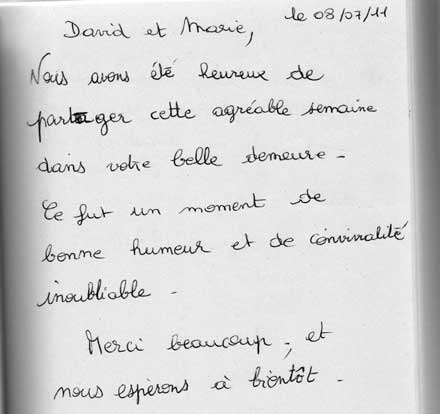 le 08/07/11
David et Marie,
Nous avons été heureux de
partager cette agréable semaine
dans votre belle demeure -
Ce fut un moment de
bonne humeur et de convivialité
inoubliable -
Merci beaucoup, et
nous espérons à bientôt -